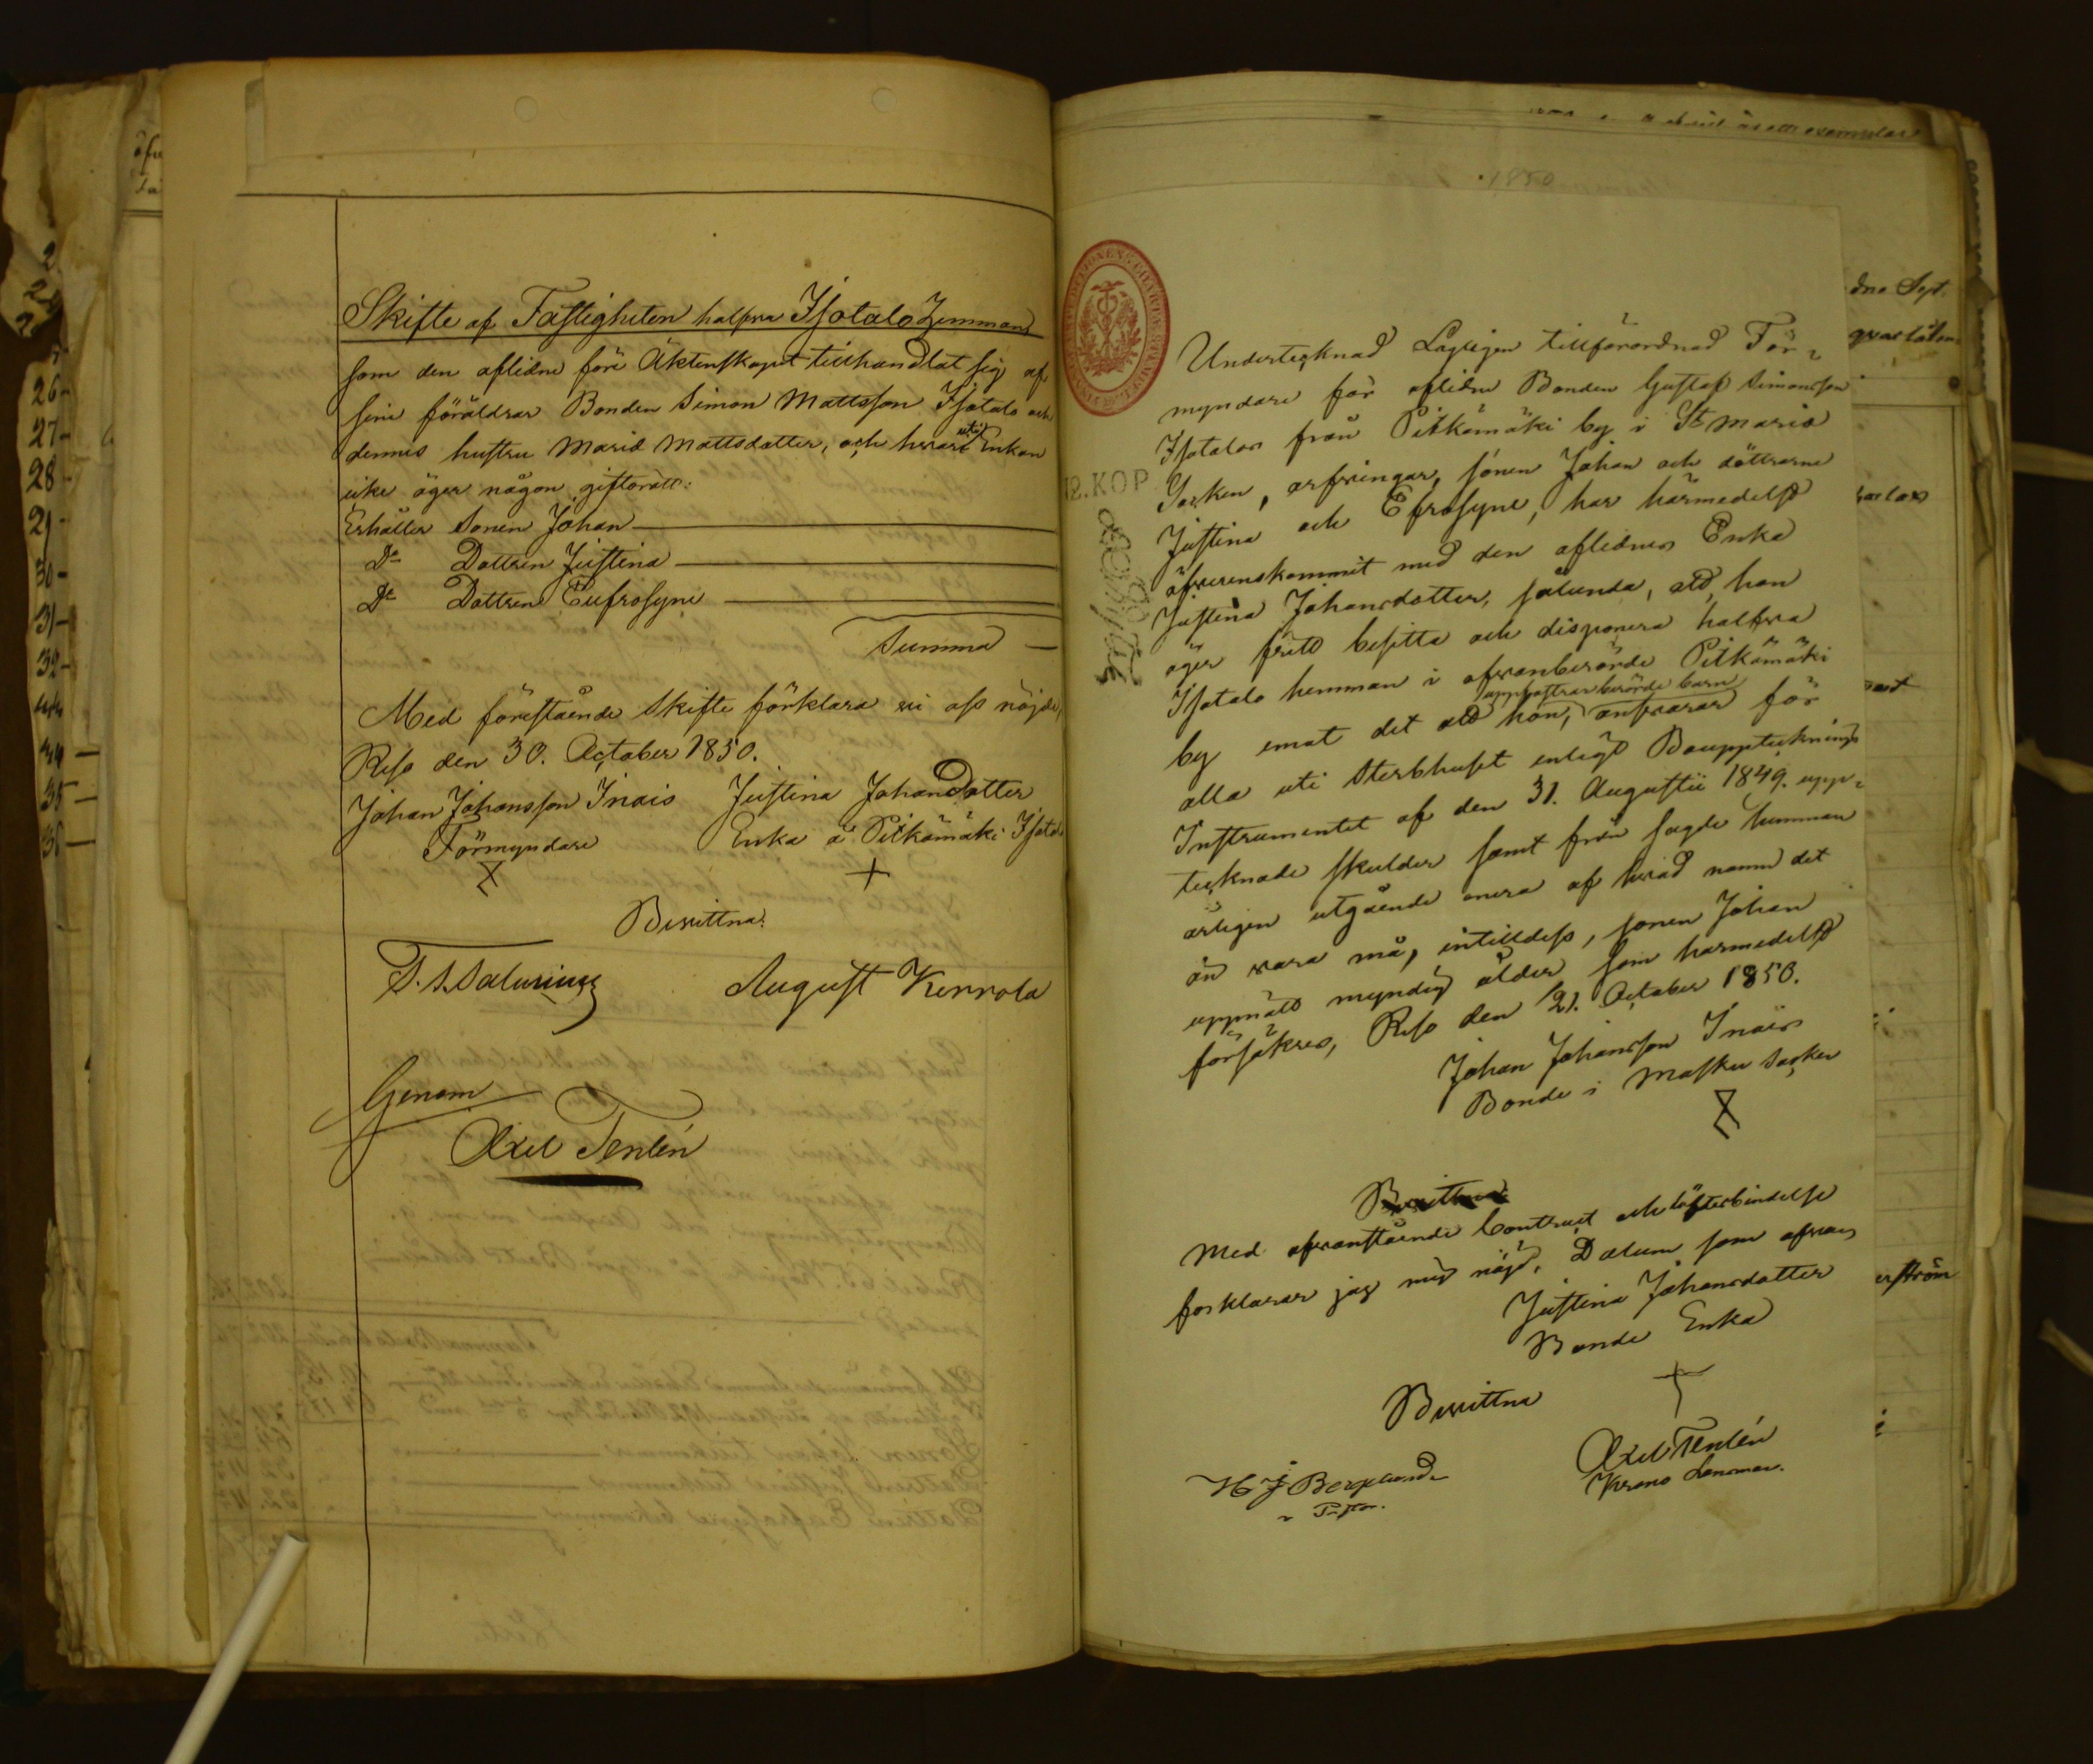 Skifte af Fastigheten halfva Isotalo Hemman
som den aflidne före Äktenskapet tillhandlat sig af
sine föräldrar Bonden Simon Mattsson Isotalo och
dennes hustru Maria Mattsdotter, och hvar uti Enkan
icke äger någon giftorätt:
Erhåller Sonen Johan
Do Dottren Justina
Do Dottren Eufrosyne
Summa
Med förestående Skifte förklara vi oss nöjde,
Reso den 30. October 1850.
Johan Johansson Inais Justina Johansdotter
Förmyndare Enka å Pitkämäki Isotalo
Bevittna:
August Kerrola
Genom
Axel Tenlén
1850
Undertecknad Lagligen tillförordnad För-
myndare för aflidne Bonden Gustaf Simonsson
Isotalos från Pitkämäki by i St Marie
Socken, arfvingar, sonen Johan och döttrarne
Justina och Efrosyne, har härmedelst
öfverenskommit med den aflidnes Enka
Justina Johansdotter, sålunda, att hon
äger fritt besitta och disponera halfva
Isotalo hemman i ofvanberörde Pitkämäki
by emot det att hon, uppfostrar berörde barn, ansvarar för
alla uti Sterbhuset enligt Bouppteknings
Instrumentet af den 31. Augustii 1849. upp-
tecknade skulder samt från sagde hemman
årligen utgående onera af hvad namn det
än vara må, intilldess, sonen Johan
uppnått myndig ålder som härmedelst
försäkras, Reso den 21. October 1850.
Johan Johansson Inais
Bonde i Masku Socken
Bevittna
Med ofvanstående Contract och löfterbindelse
förklarar jag mig nöjd, Datum som ofvan
Justina Johansdotter
Bonde Enka
Bevittna
Axel Tenlén
Krono Länsman.
H J Berglund
12. KOP
26-
27-
28-
29-
30-
31-
32-
34-
35-
36-
dra Sept.